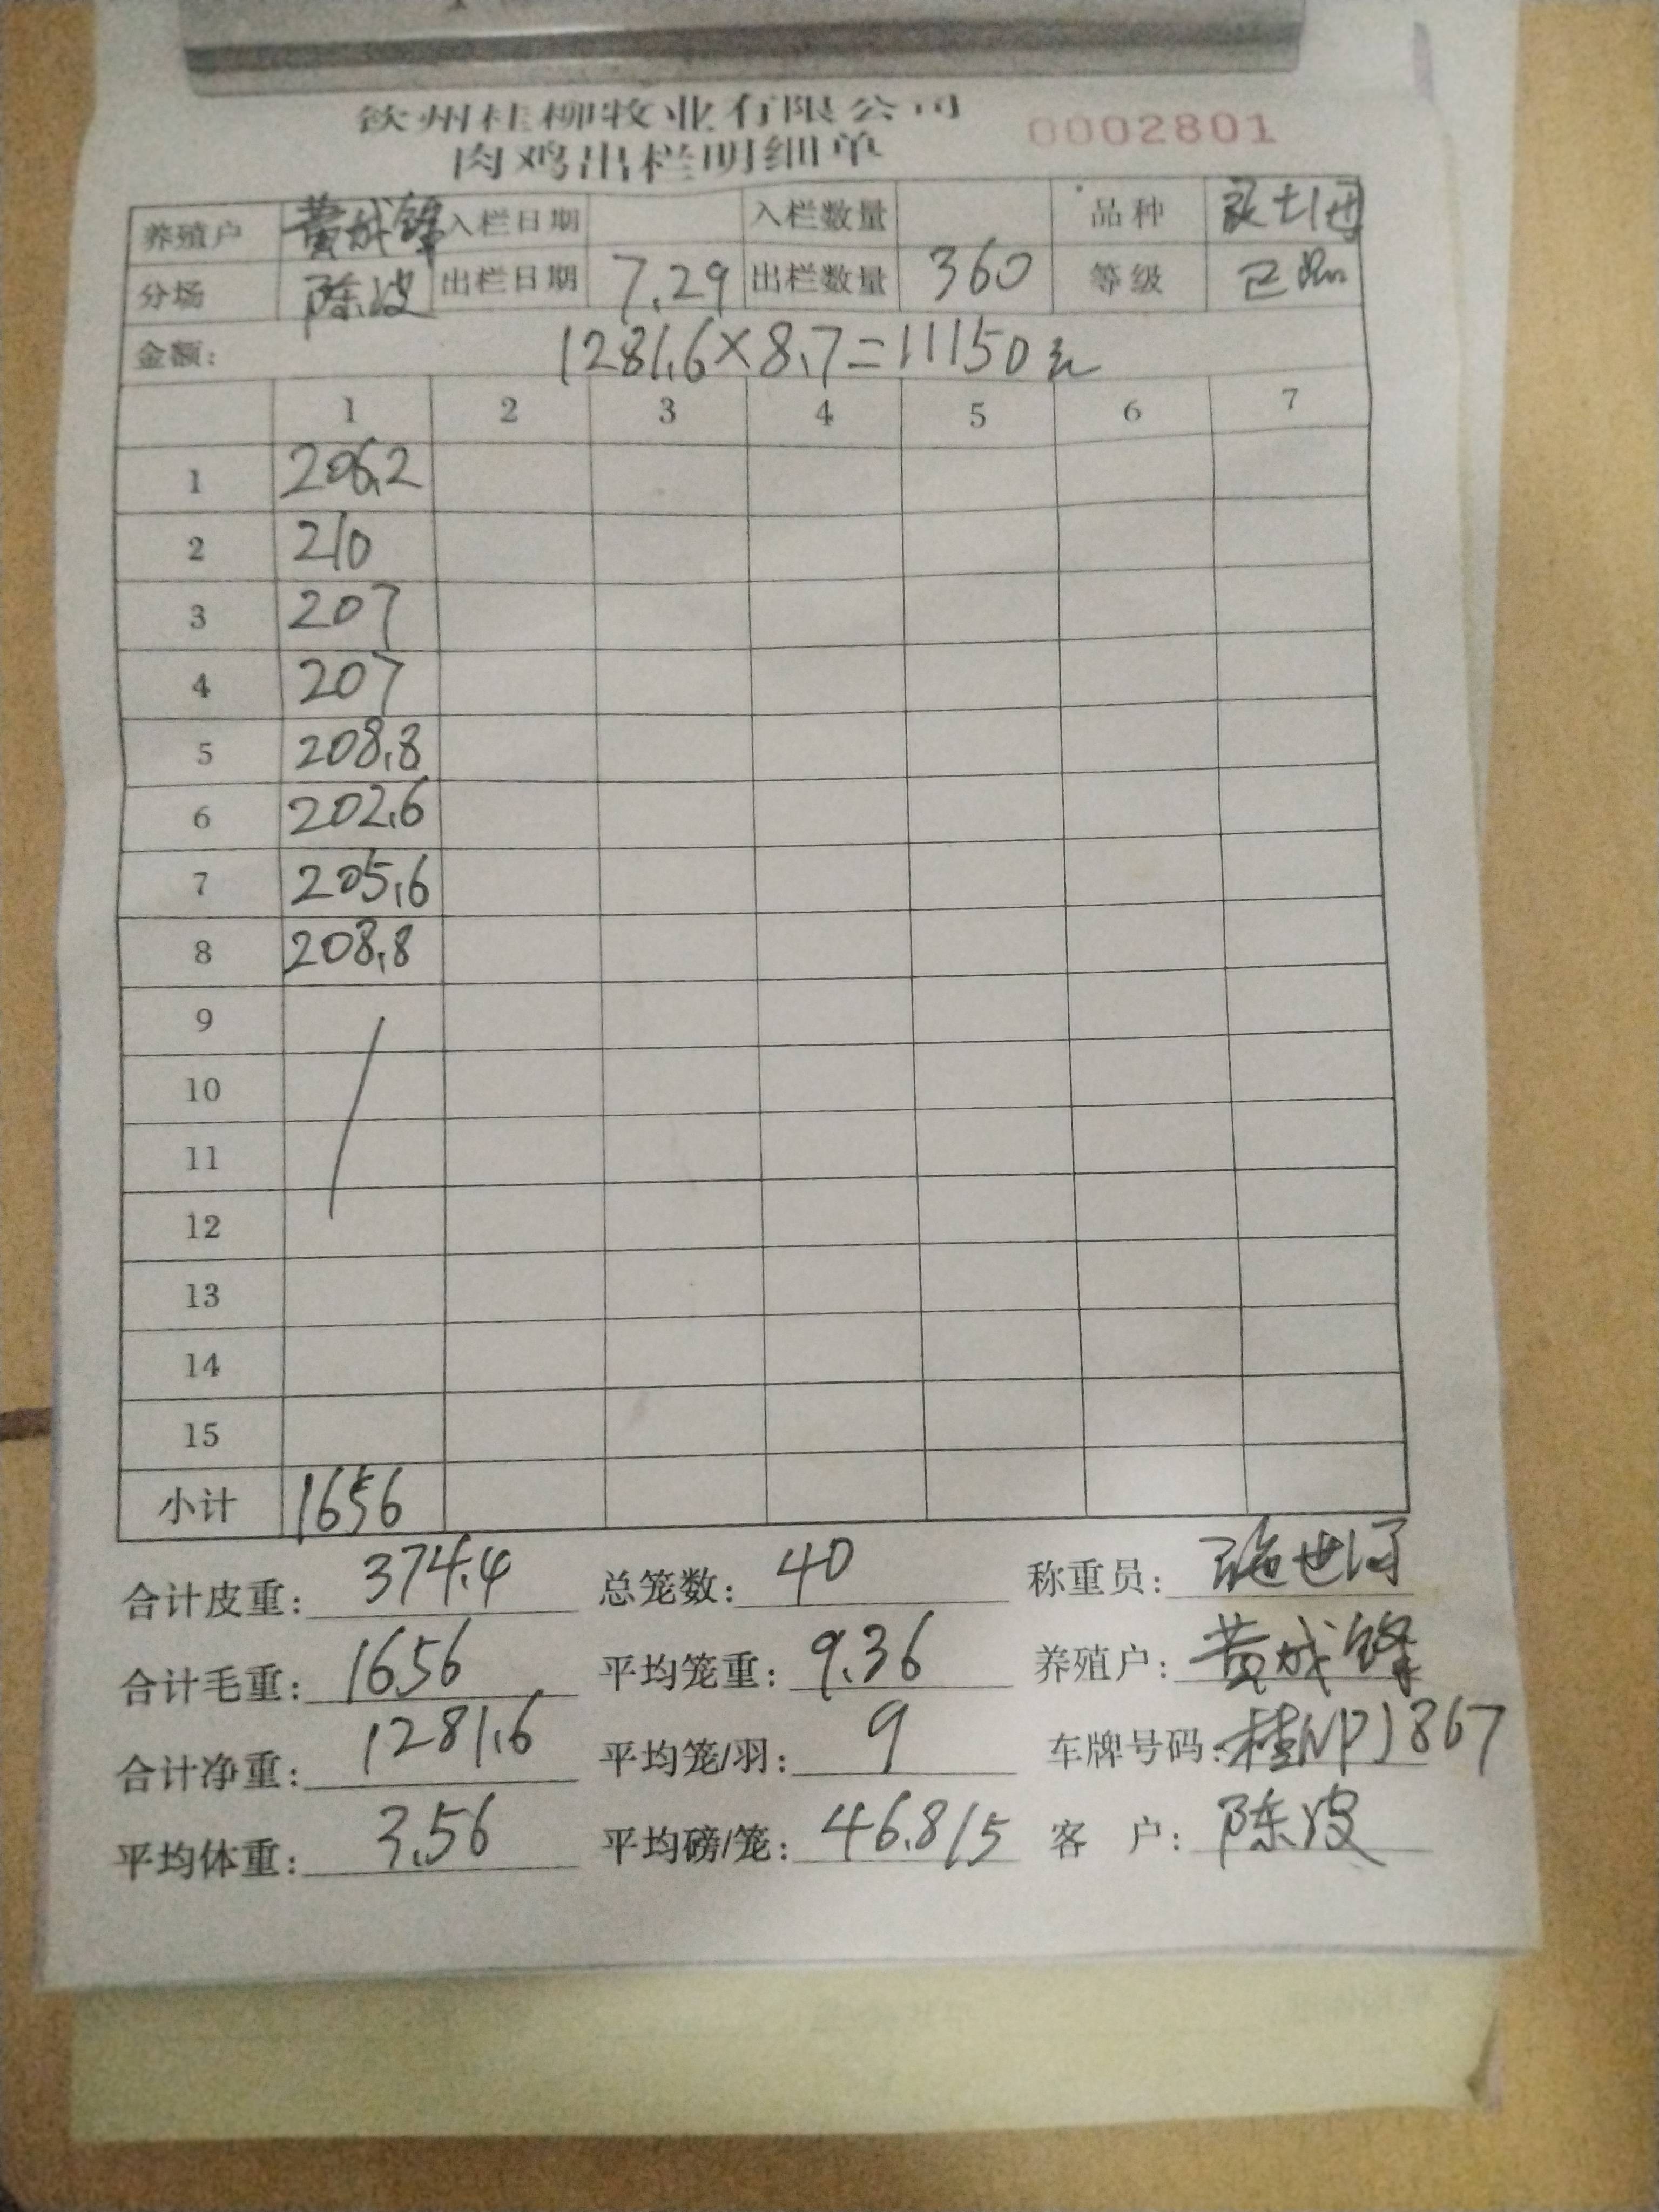 钦州桂柳牧业有限公司
肉鸡出栏明细单 0002801
养殖户 黄成锋 入栏日期 入栏数量 品种
分场 陈波 出栏日期 7.29 出栏数量 360 等级
金额: 1281.6×8.7=11150元
1 2 3 4 5 6 7
1 206.2
2 210
3 207
4 207
5 208.8
6 202.6
7 205.6
8 208.8
9
10
11
12
13
14
15
小计 1656
合计皮重: 374.4 总笼数: 40 称重员:
合计毛重: 1656 平均笼重: 9.36 养殖户: 黄成锋
合计净重: 1281.6 平均笼/羽: 9 车牌号码: 桂NPJ867
平均体重: 3.56 平均磅/笼: 46.8/5 客 户: 陈波